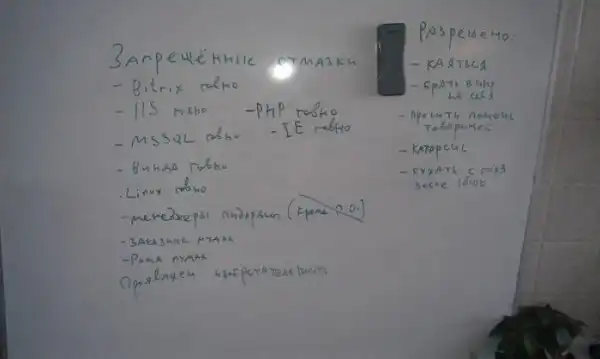 Запрещённые отмазки
- Bitrix говно
- IIS говно
- PHP говно
- MSSQL говно
- IE говно
- Винда говно
- Linux говно
- менеджеры пидорасы (кроме Р.О.)
- Заказчик мудак
- Рома мудак
Проявляем изобретательность
Разрешено:
- каяться
- брать вину на себя
- просить помощи
товарищей
- бухать с
после